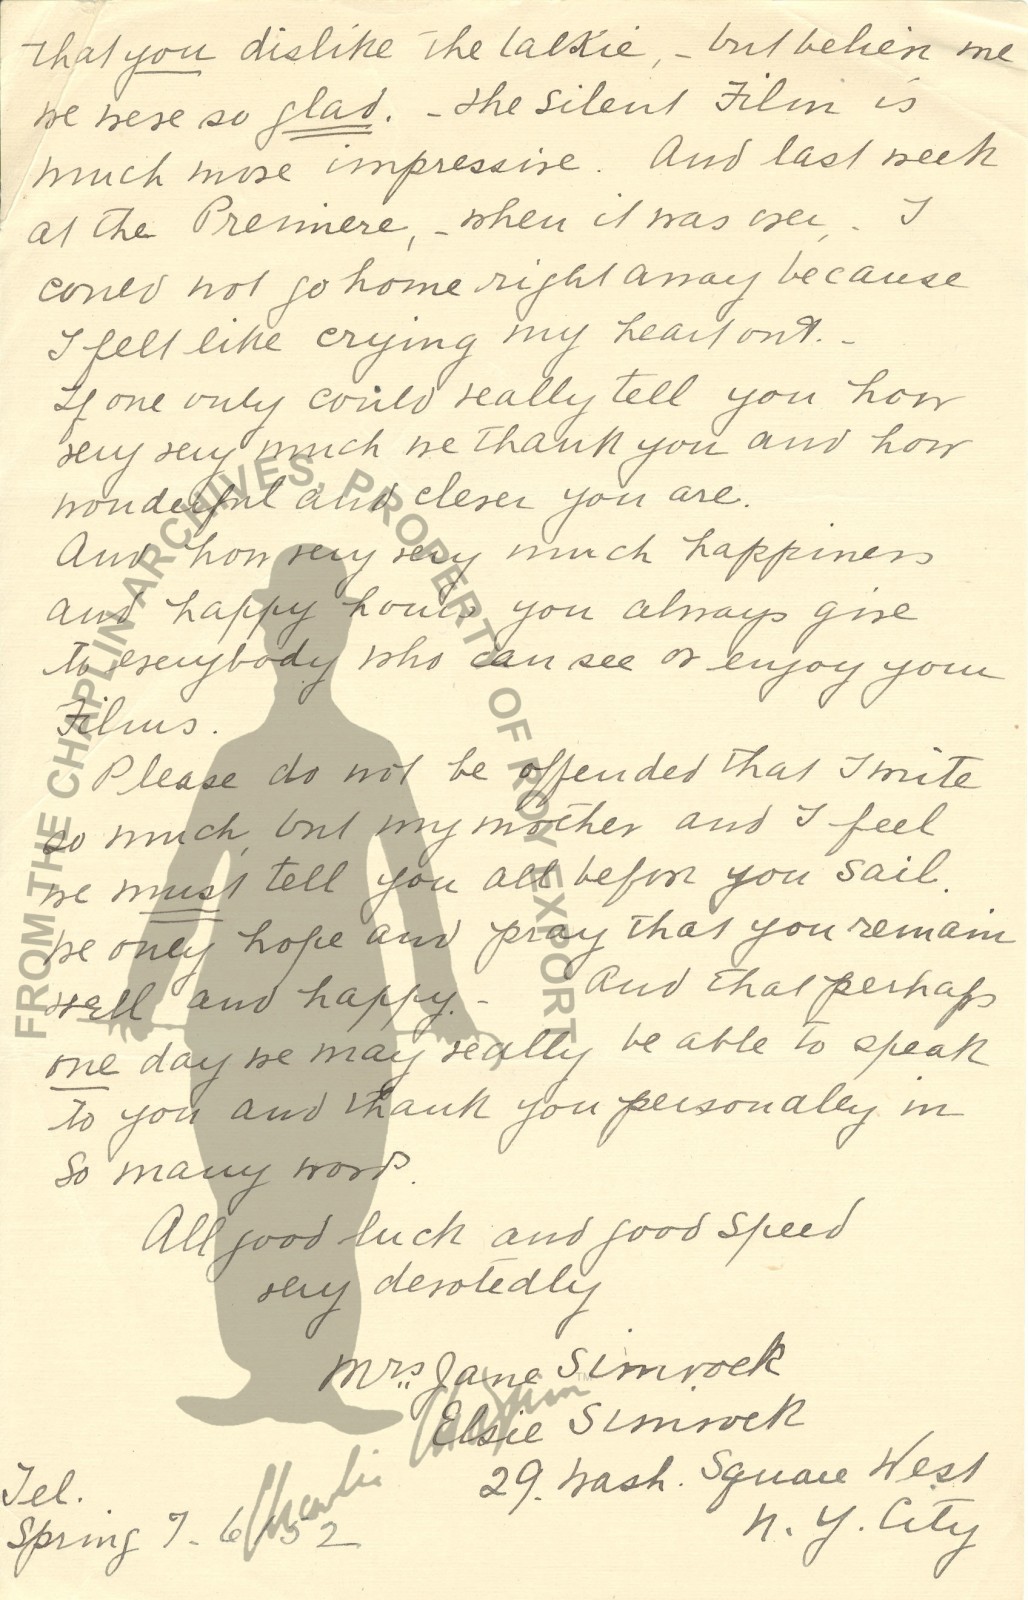 that you dislike the talkie, - but believe me
we were so glad. - The Silent Film is
much more impressive. And last week
at the Premiere, - when it was over, - I
could not go home right away because
I felt like crying my heart out. -
If one only could really tell you how
very very much we thank you and how
wonderful and clever you are.
And how very very much happiness
and happy hours you always give
to everybody who can see or enjoy your
Films.
Please do not be offended that I write
so much, but my mother and I feel
we must tell you all before you sail.
We only hope and pray that you remain
well and happy. - And that perhaps
one day we may really be able to speak
to you and thank you personally in
so many words.
All good luck and good speed
very devotedly
Mrs. Jane Simrock
Elsie Simrock
29. Wash. Square West
N. Y. City
Tel.
Spring 7-6152
FROM THE CHAPLIN ARCHIVES, PROPERTY OF ROY EXPORT
Charlie Chaplin™